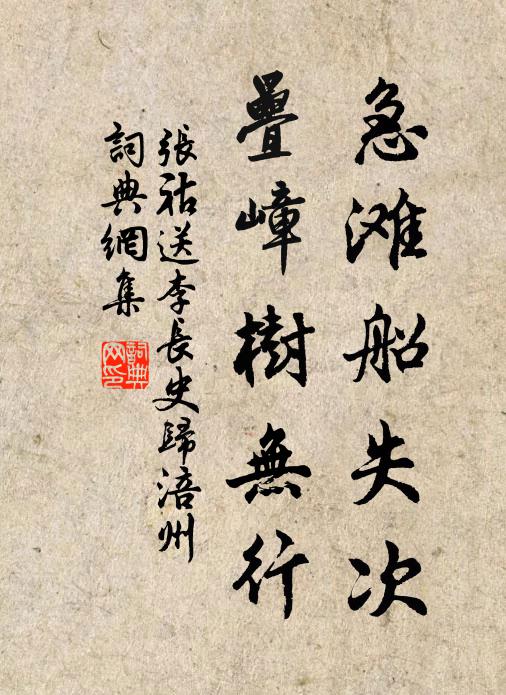 急滩船失次
疊嶂樹無行
張祜送李長史歸涪州
詞典網集
詞典
网印